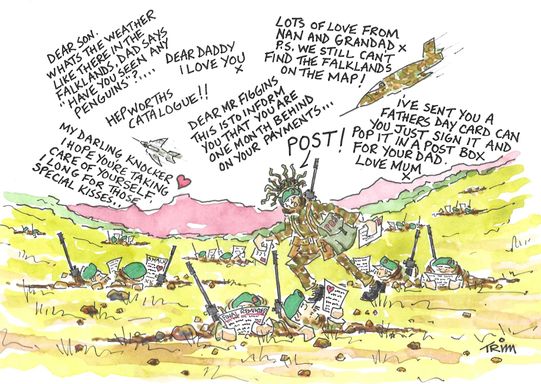 DEAR SON.
WHATS THE WEATHER
LIKE THERE IN THE
FALKLANDS, DAD SAYS
"HAVE YOU SEEN ANY
PENGUINS"?....
DEAR DADDY
I LOVE YOU
x
LOTS OF LOVE FROM
NAN AND GRANDAD x
P.S. WE STILL CAN'T
FIND THE FALKLANDS
ON THE MAP!
HEPWORTHS
CATALOGUE!!
DEAR MR FIGGINS
THIS IS TO INFORM
YOU THAT YOU ARE
ONE MONTH BEHIND
ON YOUR PAYMENTS...
I'VE SENT YOU A
FATHERS DAY CARD CAN
YOU JUST SIGN IT AND
POP IT IN A POST BOX
FOR YOUR DAD.
LOVE MUM
MY DARLING KNOCKER
I HOPE YOU'RE TAKING
CARE OF YOURSELF.
I LONG FOR THOSE
SPECIAL KISSES!
POST!
FINAL REMINDER
TRIM